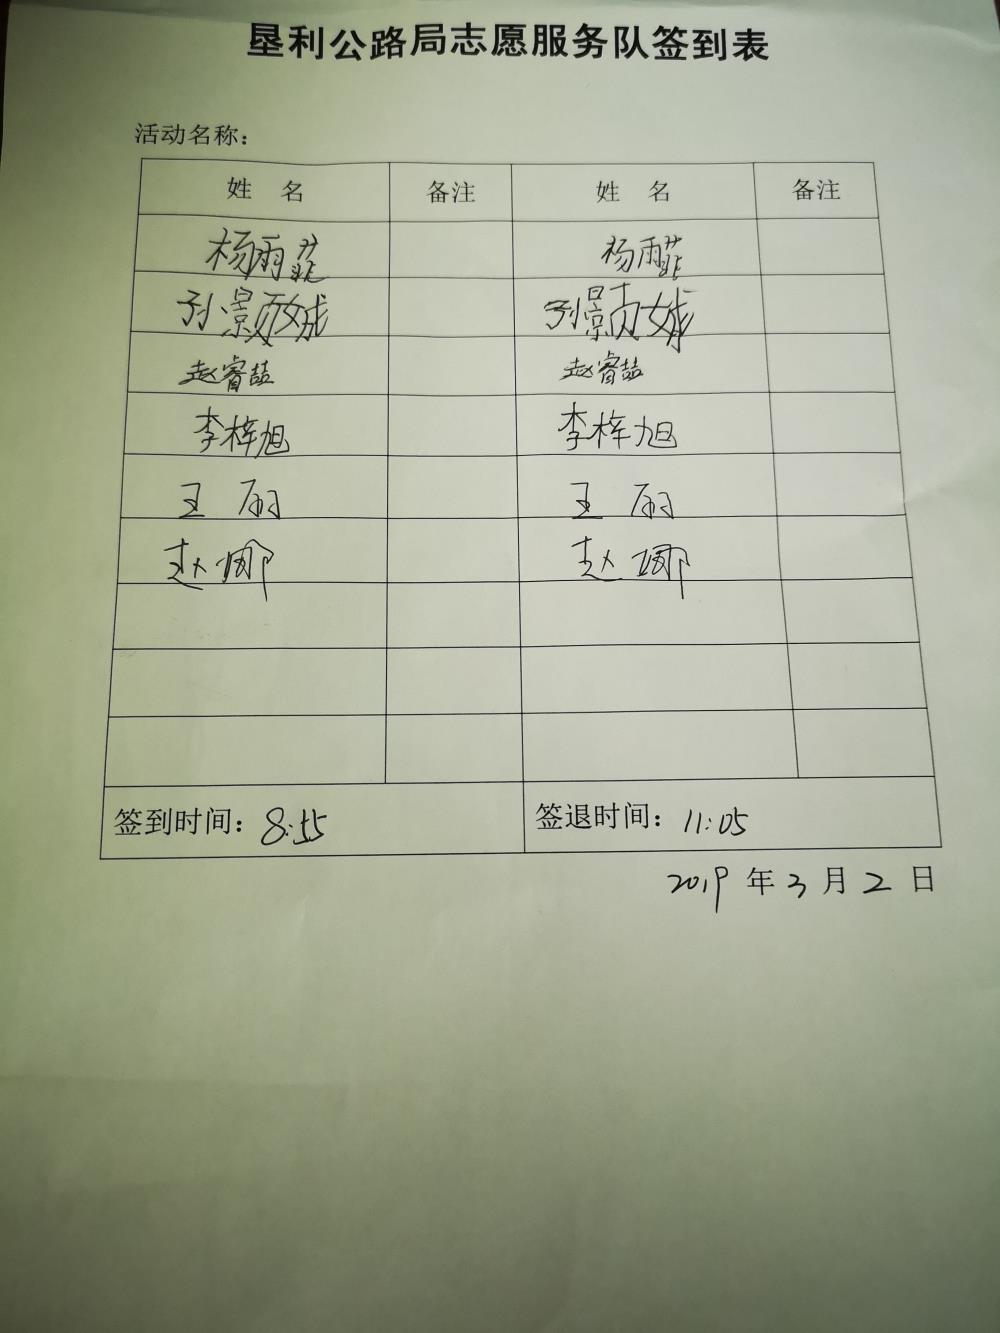 垦利公路局志愿服务队签到表
活动名称：
姓 名 备注 姓 名 备注
杨雨菲 杨雨菲
孙景 孙景
赵睿喆 赵睿喆
李梓旭 李梓旭
王丽 王丽
赵娜 赵娜
签到时间：8:55 签退时间：11:05
2019年3月2日